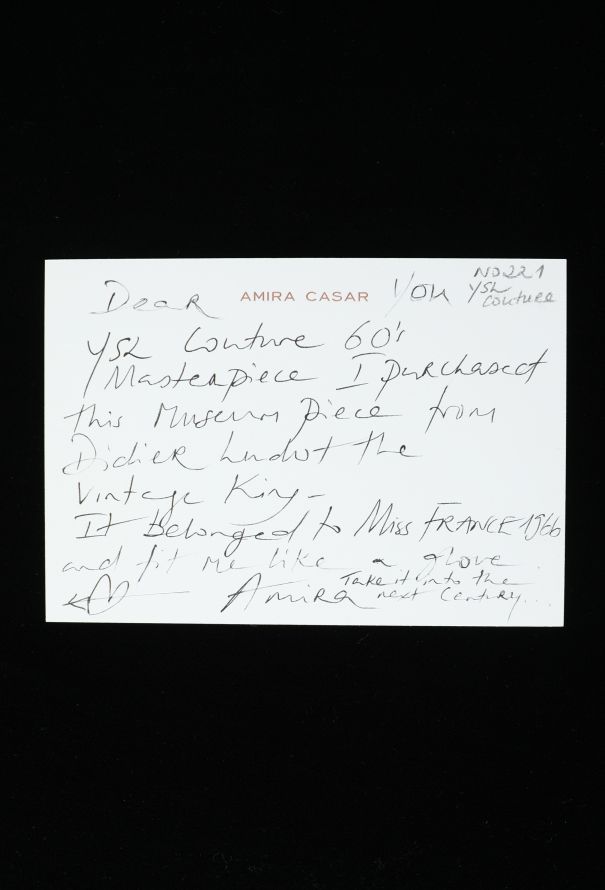 NO221
YSL
Couture
Dear AMIRA CASAR You
YSL Couture 60's
Masterpiece I purchased
this Museum Piece from
Didier Ludot the
Vintage King_
It Belonged to Miss FRANCE 1966
and fit me like a glove.
Amira Take it into the
next Century...